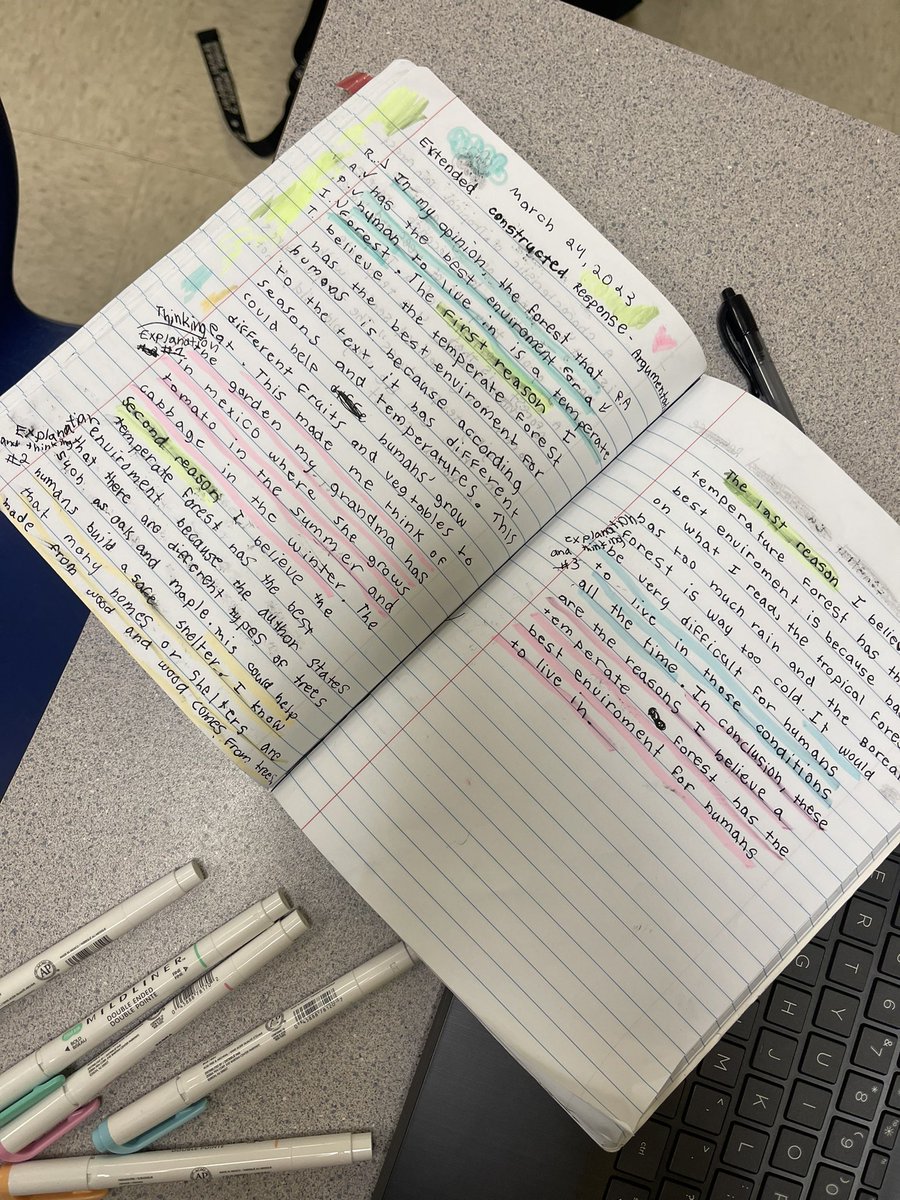 March 24, 2023
Extended constructed Response - Argumenta
R. ✓ In my opinion, the forest that
A ✓ has the best enviroment for a
P ✓ human to live in is a temperate
I ✓ Forest. The First reason I
T believe the temperate Forest
has the best enviroment for
humans is because according
to the text, it has different
seasons and temperatures. This
could help humans' grow
different fruits and vegtables to
eat. This made me think of
Thinking &
Explanation
#1
the garden my grandma has
in mexico where she grows
tomato in the summer and
cabbage in the winter. The
Second reason I believe the
temperate forest has the best
enviroment because the author states
that there are different types of trees
such as oak and maple. This could help
humans build a safe shelter. I know
that many homes or shelters are
made from wood and wood comes from trees
Explanation
and thinking
#2
RA
The last reason I believe
temperature Forest has the
best enviroment is because base
on what I read, the tropical fores
has too much rain and the Borea
forest is way too cold. It would
be very difficult for humans
to live in those conditions
all the time. In conclusion, these
are the reasons I believe a
temperate forest has the
best enviroment for humans
to live in.
Explanations
and thinking
#3
MILDLINER
DOUBLE ENDED
DOUBLE POINTE
FINE
BOLD
AP
AP
E
R
T
Y
U
I
O
G
H
J
K
L
M
6
7
8
9
ctrl